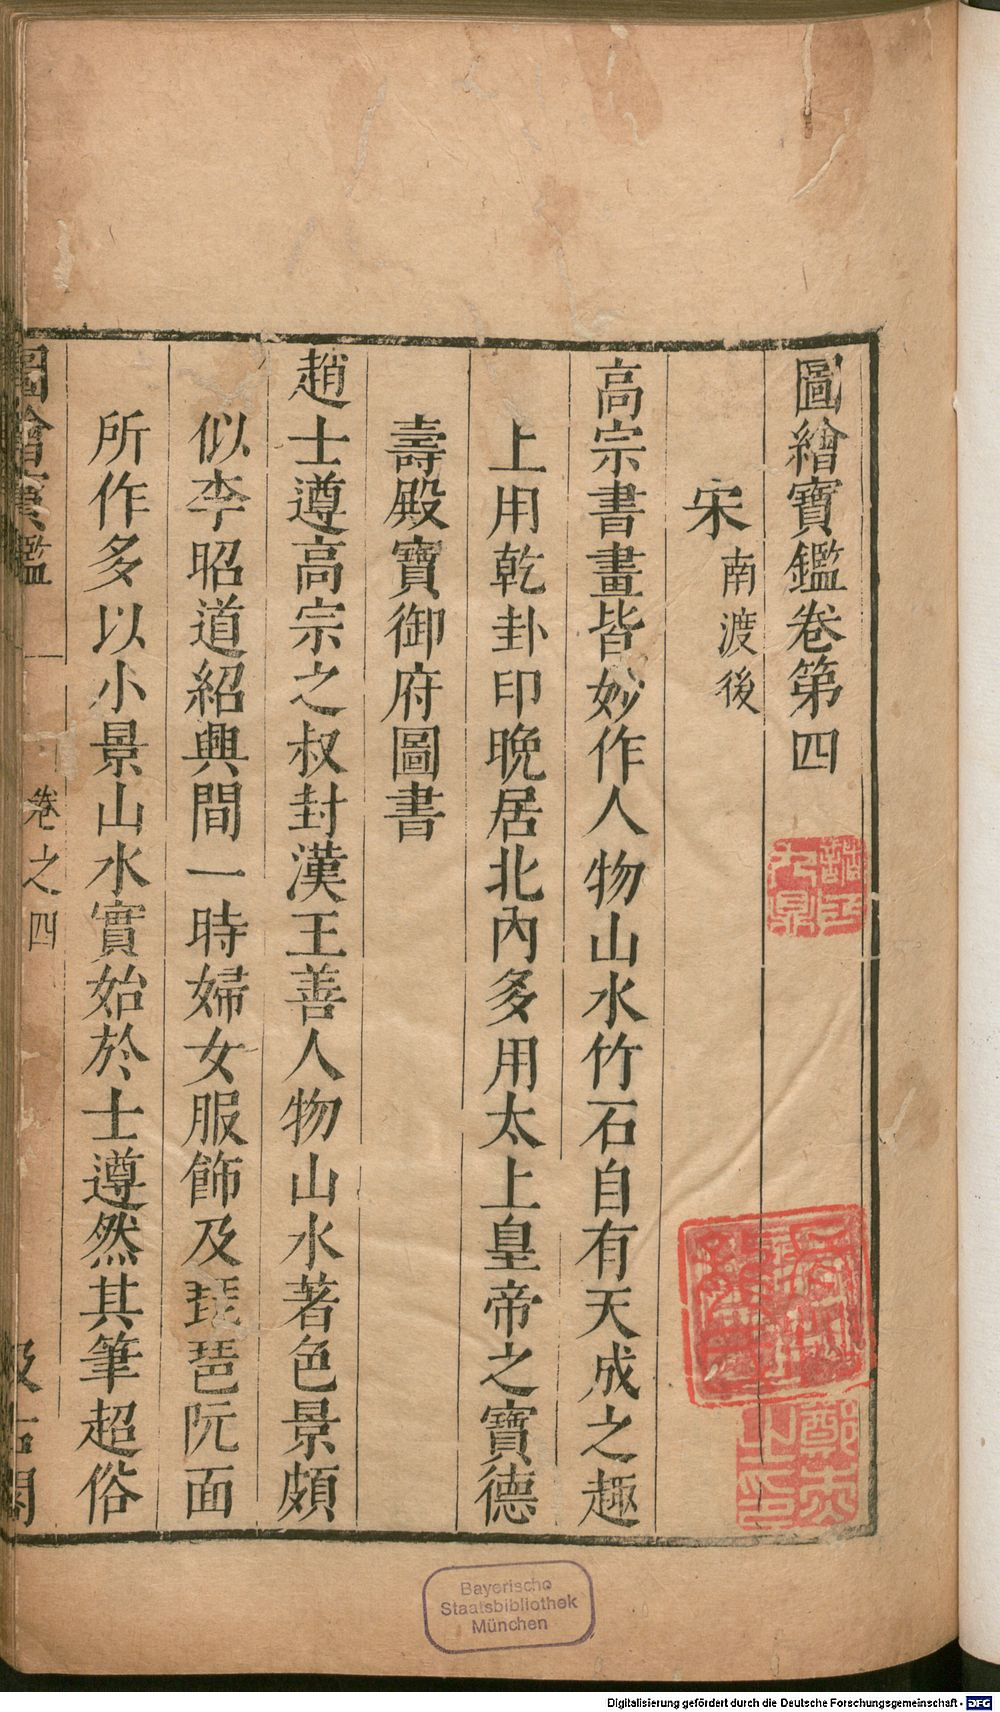 圖繪寶鑑卷第四
宋南渡後
高宗書畫皆妙作人物山水竹石自有天成之趣
上用乾卦印晚居北內多用太上皇帝之寶德
壽殿寶御府圖書
趙士遵高宗之叔封漢王善人物山水著色景頗
似李昭道紹興間一時婦女服飾及琵琶阮面
所作多以小景山水實始於士遵然其筆超俗
圖繪寶鑑 卷之四 汲古閣
Bayerische
Staatsbibliothek
München
Digitalisierung gefördert durch die Deutsche Forschungsgemeinschaft - DFG